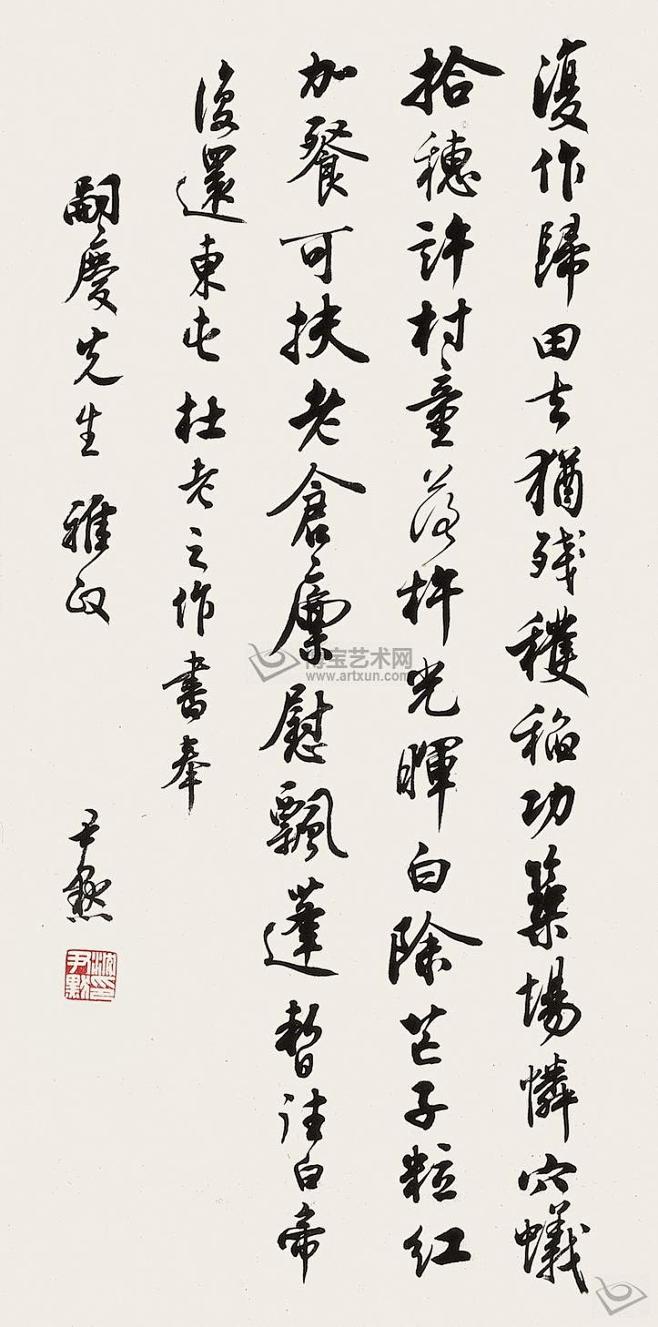 復作歸田去猶殘穫稻功築場憐穴蟻
拾穗許村童落杵光暉白除芒子粒紅
加餐可扶老倉廩慰飄蓬 暫往白帝
復還東屯 杜老之作書奉
嗣慶先生 雅政
尹默
沈尹默印
博宝艺术网
www.artxun.com